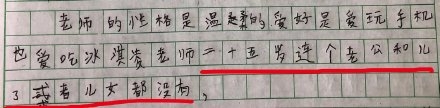 老师的性格是温柔的爱好是爱玩手机
也爱吃冰淇凌老师二十五岁连个老公和儿
子或者儿女都没有，